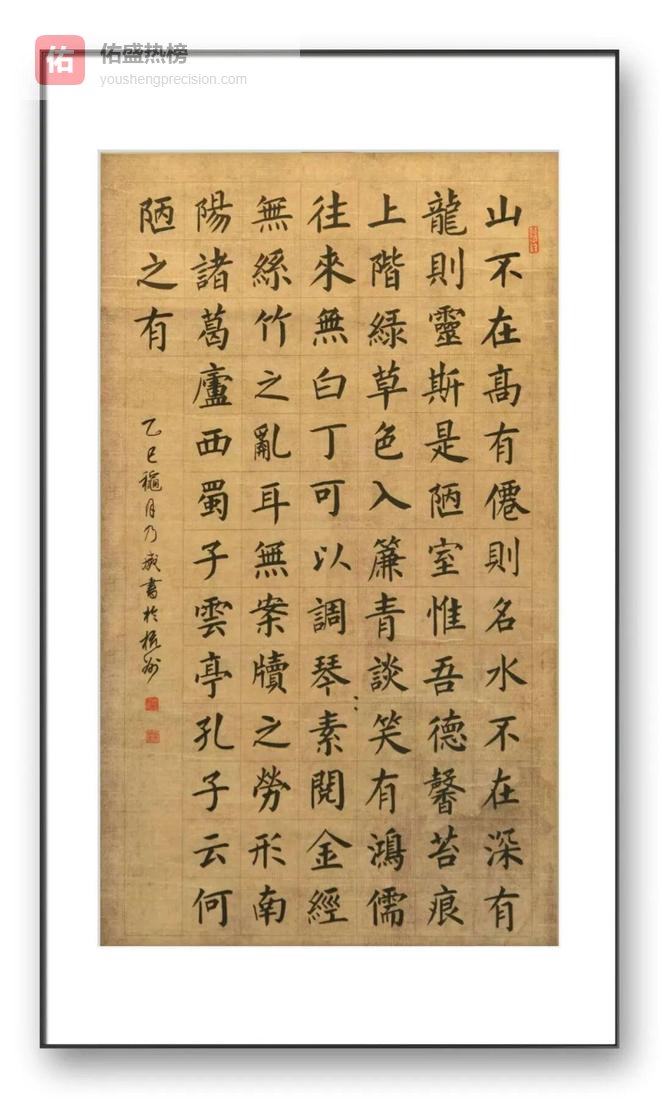 佑
佑盛热榜
youshengprecision.com
山不在高有僊則名水不在深有
龍則靈斯是陋室惟吾德馨苔痕
上階綠草色入簾青談笑有鴻儒
往來無白丁可以調琴素閱金經
無絲竹之亂耳無案牘之勞形南
陽諸葛廬西蜀子雲亭孔子云何
陋之有
乙巳龝月乃成書於杭州